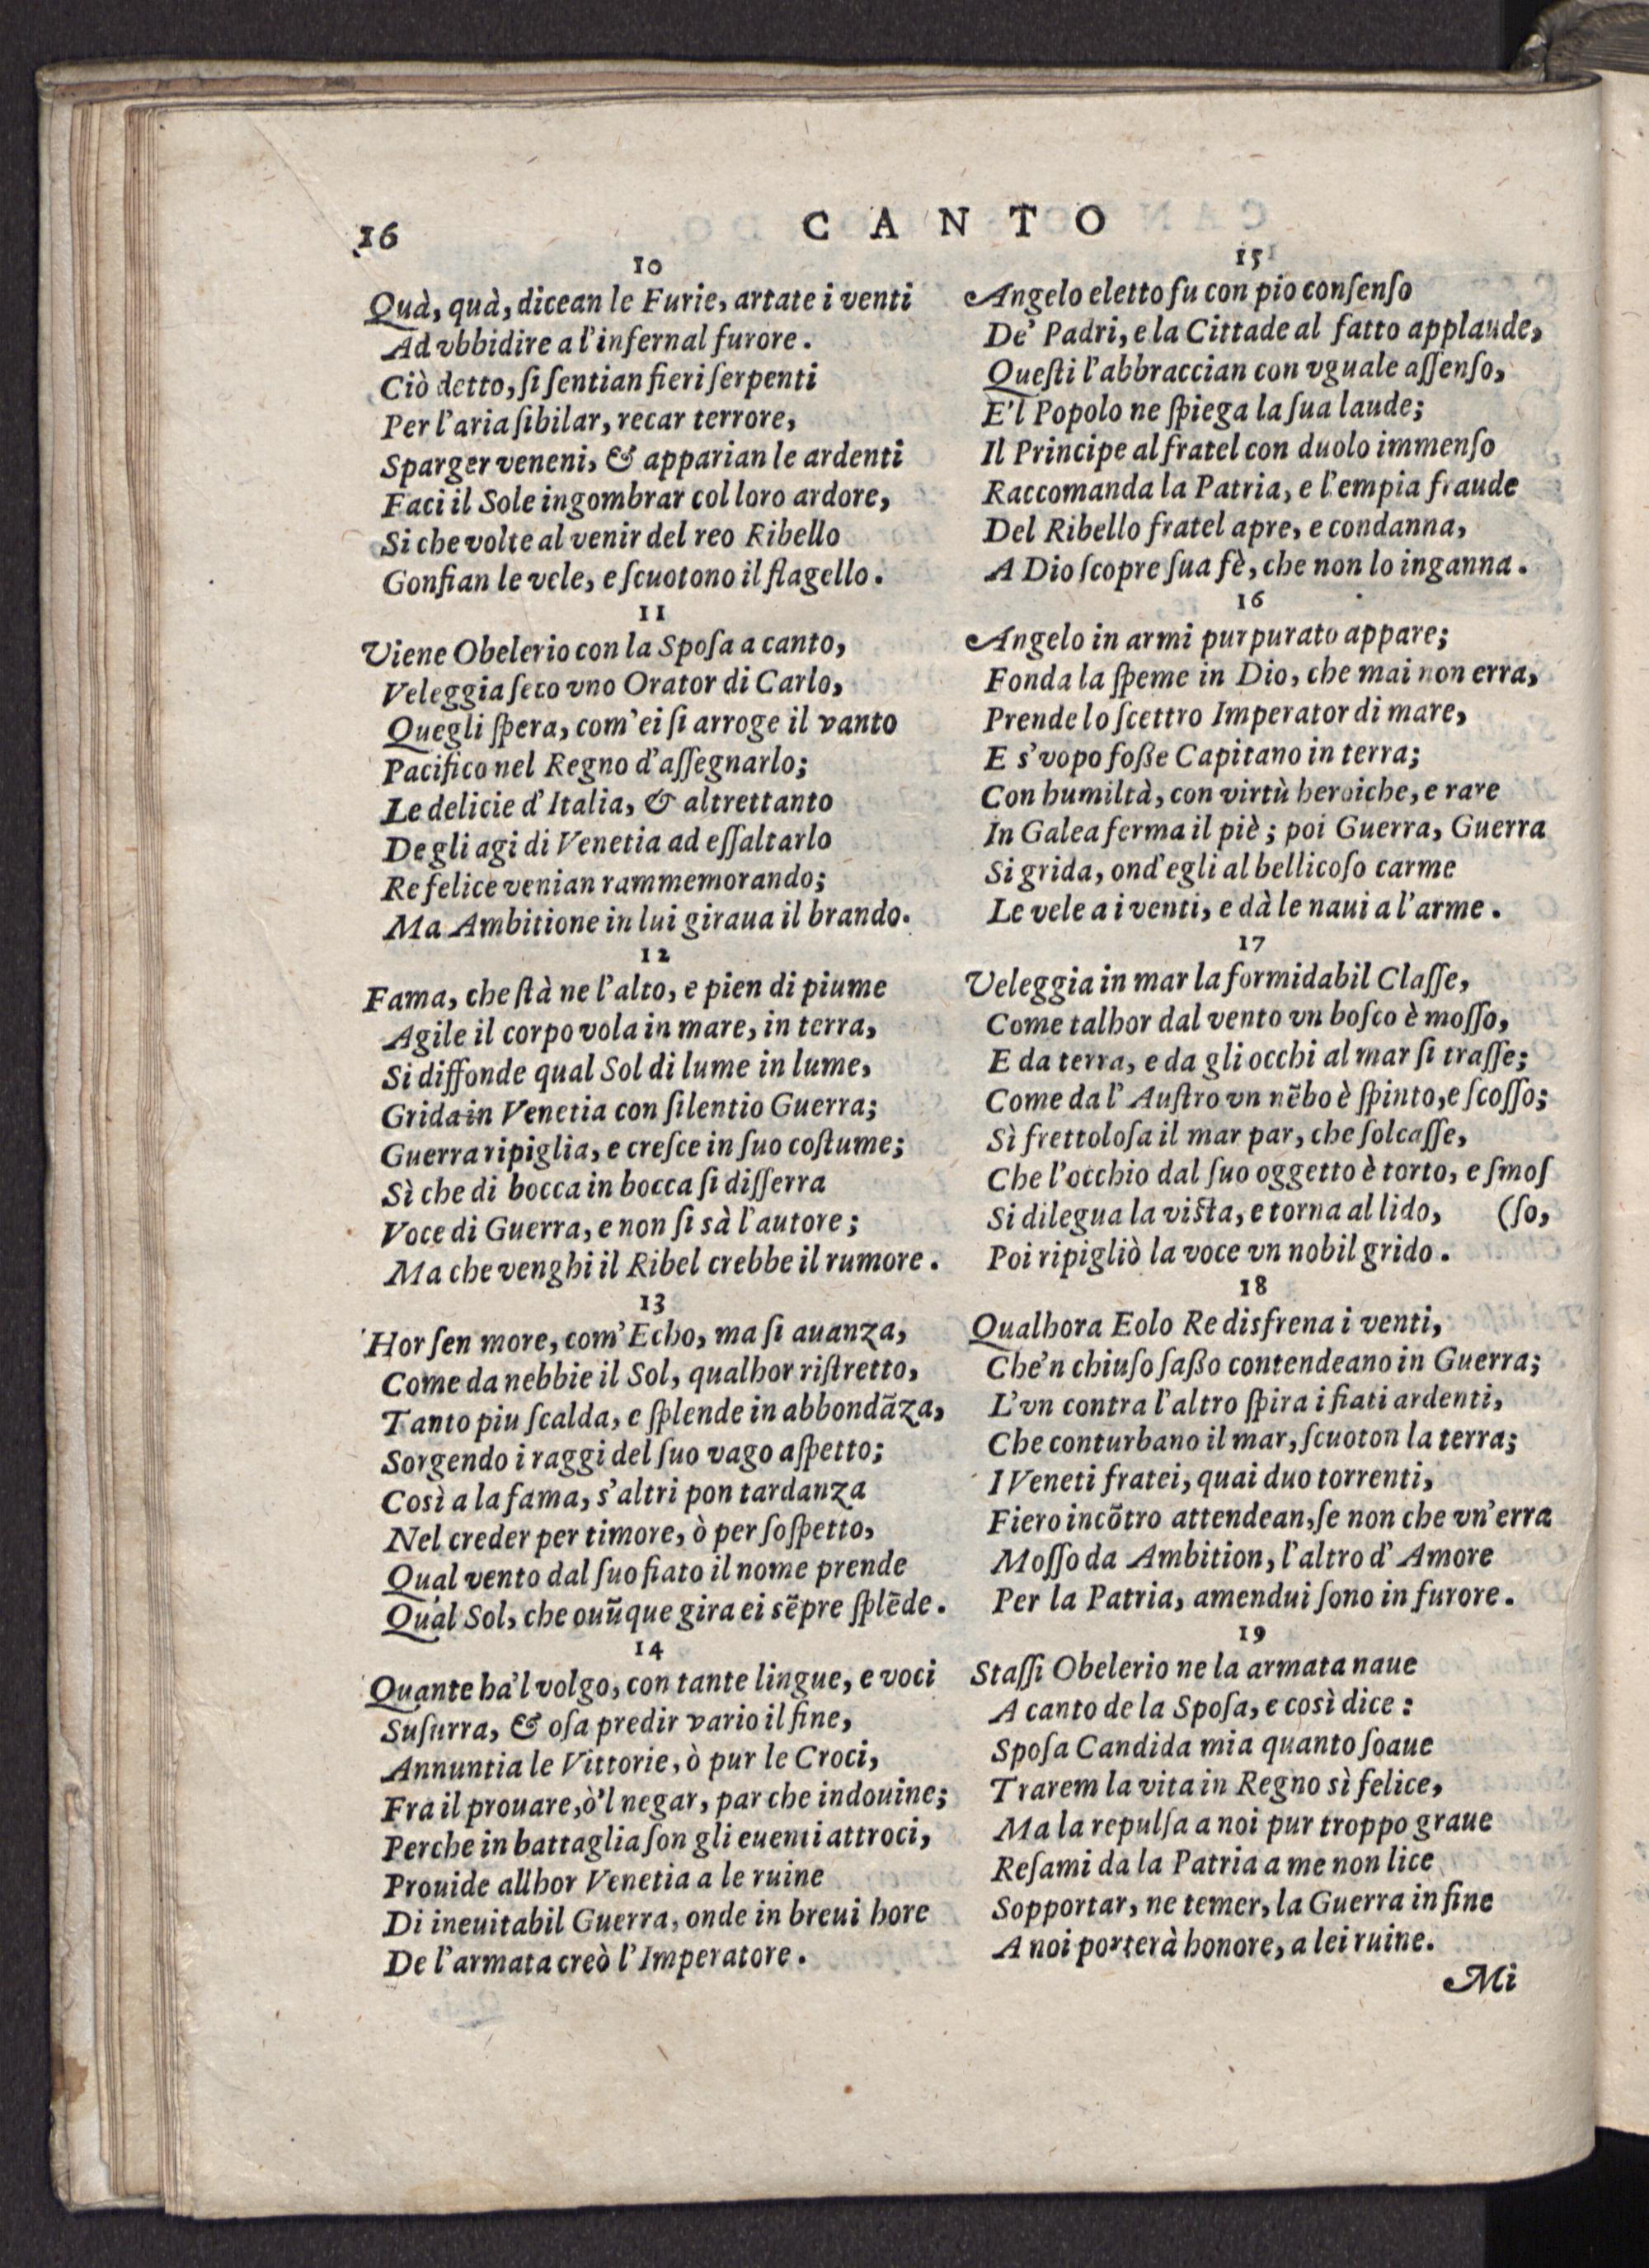 16
CANTO
10
Quà, quà, dicean le Furie, artate i venti
Ad vbbidire a l'infernal furore.
Ciò detto, ſi ſentian fieri ſerpenti
Per l'aria ſibilar, recar terrore,
Sparger veneni, & apparian le ardenti
Faci il Sole ingombrar col loro ardore,
Si che volte al venir del reo Ribello
Gonfian le vele, e ſcuotono il flagello.
11
Viene Obelerio con la Spoſa a canto,
Veleggia ſeco vno Orator di Carlo,
Quegli ſpera, com'ei ſi arroge il vanto
Pacifico nel Regno d'aſſegnarlo;
Le delicie d'Italia, & altrettanto
De gli agi di Venetia ad eſſaltarlo
Re felice venian rammemorando;
Ma Ambitione in lui giraua il brando.
12
Fama, che ſtà ne l'alto, e pien di piume
Agile il corpo vola in mare, in terra,
Si diffonde qual Sol di lume in lume,
Grida in Venetia con ſilentio Guerra;
Guerra ripiglia, e creſce in ſuo coſtume;
Sì che di bocca in bocca ſi diſſerra
Voce di Guerra, e non ſi sà l'autore;
Ma che venghi il Ribel crebbe il rumore.
13
Hor ſen more, com'Echo, ma ſi auanza,
Come da nebbie il Sol, qualhor riſtretto,
Tanto piu ſcalda, e ſplende in abbondãza,
Sorgendo i raggi del ſuo vago aſpetto;
Così a la fama, s'altri pon tardanza
Nel creder per timore, ò per ſoſpetto,
Qual vento dal ſuo fiato il nome prende
Qual Sol, che ouũque gira ei sẽpre ſplẽde.
14
Quante ha'l volgo, con tante lingue, e voci
Suſurra, & oſa predir vario il fine,
Annuntia le Vittorie, ò pur le Croci,
Fra il prouare, ò'l negar, par che indouine;
Perche in battaglia ſon gli euenti attroci,
Prouide all'hor Venetia a le ruine
Di ineuitabil Guerra, onde in breui hore
De l'armata creò l'Imperatore.
15
Angelo eletto fu con pio conſenſo
De' Padri, e la Cittade al fatto applaude,
Queſti l'abbraccian con vguale aſſenſo,
E'l Popolo ne ſpiega la ſua laude;
Il Principe al fratel con duolo immenſo
Raccomanda la Patria, e l'empia fraude
Del Ribello fratel apre, e condanna,
A Dio ſcopre ſua fè, che non lo inganna.
16
Angelo in armi purpurato appare;
Fonda la ſpeme in Dio, che mai non erra,
Prende lo ſcettro Imperator di mare,
E s'vopo foße Capitano in terra;
Con humiltà, con virtù heroiche, e rare
In Galea ferma il piè; poi Guerra, Guerra
Si grida, ond'egli al bellicoſo carme
Le vele a i venti, e dà le naui a l'arme.
17
Veleggia in mar la formidabil Claſſe,
Come talhor dal vento vn boſco è moſſo,
E da terra, e da gli occhi al mar ſi traſſe;
Come da l'Auſtro vn nẽbo è ſpinto, e ſcoſſo;
Sì frettoloſa il mar par, che ſolcaſſe,
Che l'occhio dal ſuo oggetto è torto, e ſmoſ
Si dilegua la viſta, e torna al lido, (ſo,
Poi ripigliò la voce vn nobil grido.
18
Qualhora Eolo Re disfrena i venti,
Che'n chiuſo ſaßo contendeano in Guerra;
L'vn contra l'altro ſpira i fiati ardenti,
Che conturbano il mar, ſcuoton la terra;
I Veneti fratei, quai duo torrenti,
Fiero incõtro attendean, ſe non che vn'erra
Moſſo da Ambition, l'altro d'Amore
Per la Patria, amendui ſono in furore.
19
Staſſi Obelerio ne la armata naue
A canto de la Spoſa, e così dice:
Spoſa Candida mia quanto ſoaue
Trarem la vita in Regno sì felice,
Ma la repulſa a noi pur troppo graue
Reſami da la Patria a me non lice
Sopportar, ne temer, la Guerra in fine
A noi porterà honore, a lei ruine.
Mi